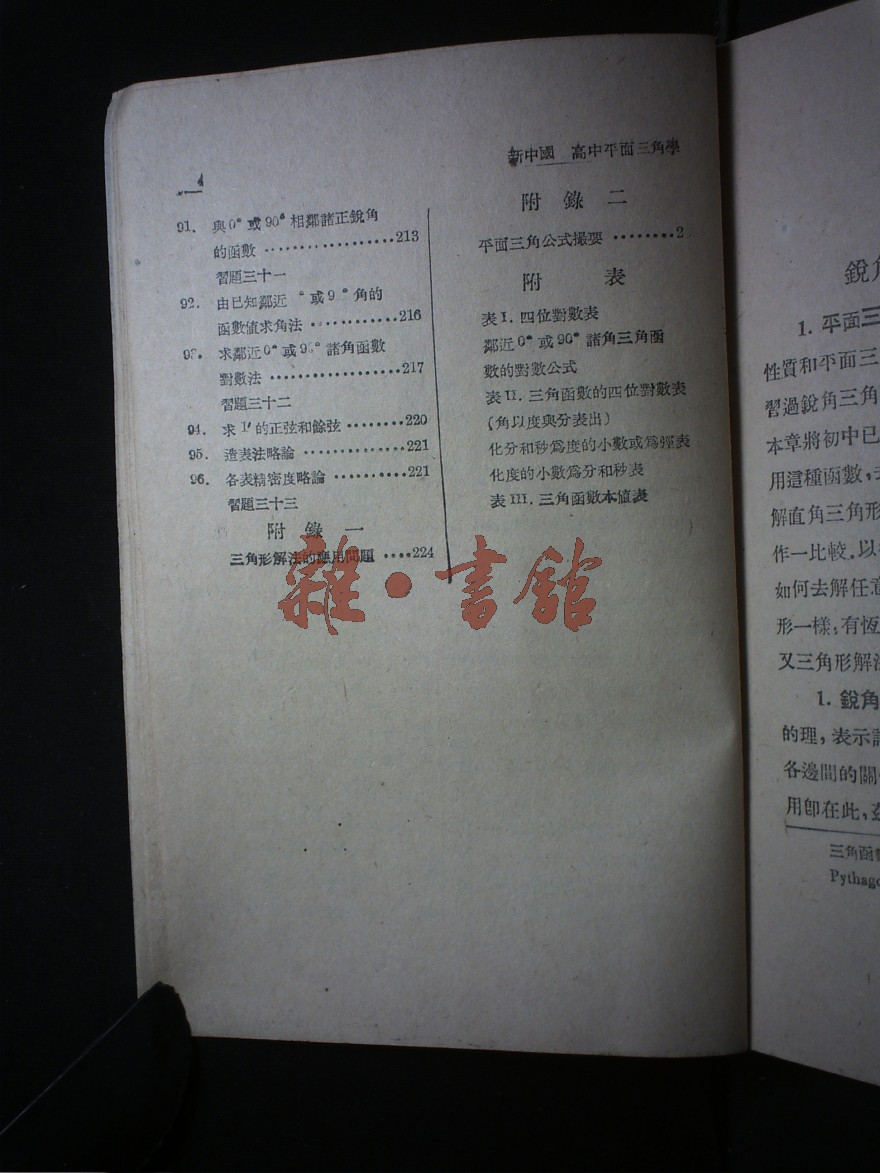 4
新中國 高中平面三角學
91. 與0°或90°相鄰諸正銳角
的函數 ··················213
習題三十一
92. 由已知鄰近 °或9 °角的
函數值求角法 ············216
93. 求鄰近0°或90°諸角函數
對數法 ··················217
習題三十二
94. 求1′的正弦和餘弦 ········220
95. 造表法略論 ··············221
96. 各表精密度略論 ··········221
習題三十三
附錄一
三角形解法的應用問題 ····224
附錄二
平面三角公式撮要 ········2
附表
表I. 四位對數表
鄰近0°或90°諸角三角函
數的對數公式
表II. 三角函數的四位對數表
(角以度與分表出)
化分和秒爲度的小數或爲弳表
化度的小數爲分和秒表
表III. 三角函數本值表
雜·書館
銳角
1. 平面三
性質和平面三
習過銳角三角
本章將初中已
用這種函數,
解直角三角形
作一比較.以
如何去解任意
形一樣,有恆
又三角形解法
1. 銳角
的理,表示
各邊間的關
用卽在此,
三角函數
Pythago